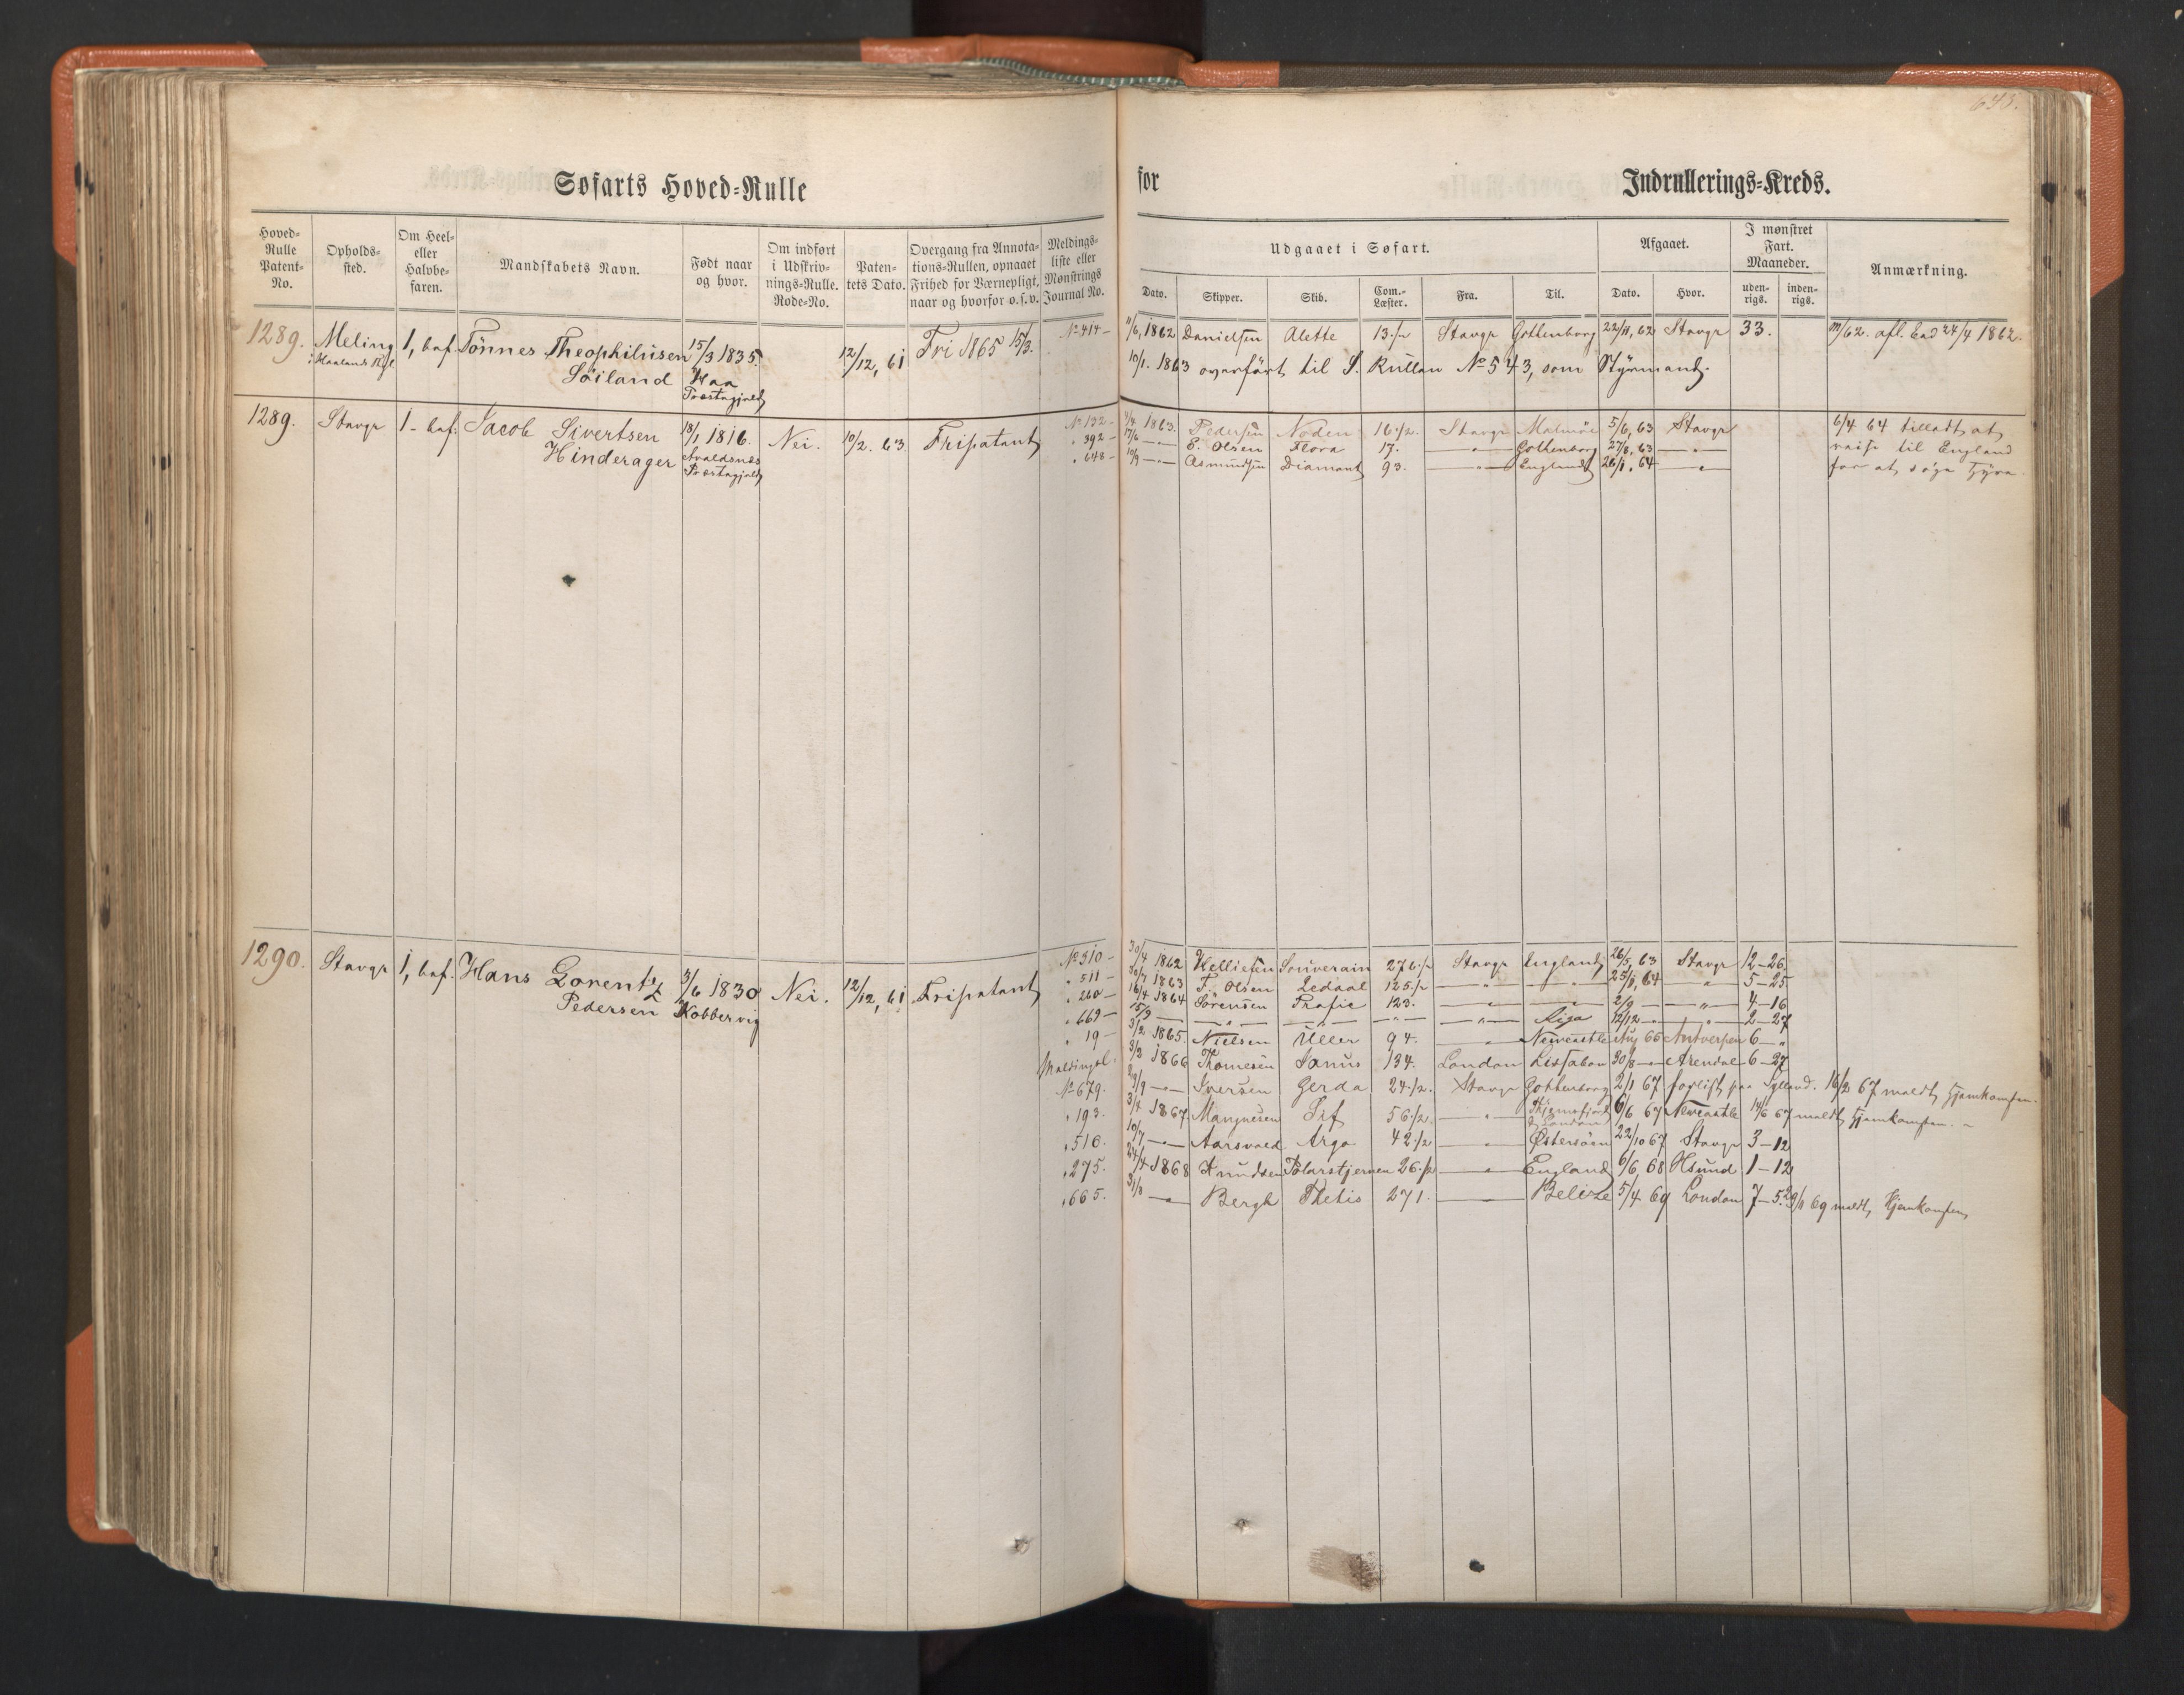 643.
Søfarts Hoved=Rulle
for Indrullerings=Kreds.
Hoved=Rulle Patent=No.
Opholds=sted.
Om Heel= eller Halvbe=faren.
Mandskabets Navn.
Født naar og hvor.
Om indført i Udskriv=nings=Rulle. Rode=No.
Paten=tets Dato.
Overgang fra Annota=tions=Rullen, opnaaet Frihed for Værnepligt, naar og hvorfor o.s.v.
Meldings=liste eller Mønstrings Journal No.
Udgaaet i Søfart.
Dato. Skipper. Skib. Com.=Læster. Fra. Til.
Afgaaet.
Dato. Hvor.
I mønstret Fart. Maaneder.
uden=rigs. inden=rigs.
Anmærkning.
1289. Meling 1, bef. Tönnes Theophilusen 15/3 1835. 12/12, 61 Fri 1865 15/3. No 414 - 11/6, 1862 Danielsen Alette 13.1/2 Stavgr Gottenborg 22/11, 62 Stavgr 33.
Söiland Haa Præstegjeld 10/1. 1863 overfört til S. Rullen No 543, som Styrmand.
1289. Stavgr 1 - bef: Jacob Sivertsen 18/1 1816. Nei. 10/2. 63 Fripatent No 132 - 1863. Pedersen Noden 16.1/2. Stavgr Malmöe 5/6, 63 Stavgr 6/4 64 tilladt at
Hinderager Avaldsnes Præstegjeld " 392 - 17/6 — " — E. Olsen Flora 17. — " — Gottenborg 27/8, 63 — " — reise til England
" 648 - 10/9 — " — Asmundsen Diamant 93. — " — England 26/11. 64 — " — for at söge Hyre.
1290. Stavgr 1, bef. Hans Lorentz 3/6 1830 Nei. 12/12, 61 Fripatent No 310 - 30/4 1862 Helliesen Souverain 276.1/2 Stavgr England 26/5, 63 Stavgr 12-26.
Pedersen Kobbervig " 511 - 30/7 1863 T. Olsen Ledaal 125.1/2 — " — — " — 25/11, 64 " 5-25
" 260 - 16/4 1864 Sörensen Trafic 123. — " — — " — 2/9 — " 4-16
" 669 - 15/9 — — " — — " — — " — — " — Riga 12/12 - " 2-27
" 19 - 3/2 1865. Nielsen Uller 94. — " — Newcastle Aug 65 Antverpen 6 - "
Meldingsl. 3/2 1866 Thomesen Janus 134. London Lissabon 30/8 — Arendal 6-27
No 679. 29/9 — " — Iversen Gerda 24.1/2. Stavgr Gottenborg 2/1 67 forlist paa Jylland. 16/2 67 meldt Hjemkomsten.
" 193. 3/4 1867 Magnesen Sif 56.1/2. — " — & London 6/6 67 Newcastle 14/6 67 meldt Hjemkomsten.
" 510. 10/7 — " — Aarsvold Argo 42.1/2 — " — Østersöen 22/10 67 Stavgr 3-12
" 275. 24/4 1868 Knudsen Polarstjernen 26.1/2 — " — England 6/6, 68 Hsund 1-12
" 665. 31/8 — " — Bergh Thetis 271. — Belize 5/4 69 London 7-5. 29/4 69 meldt Hjemkomsten